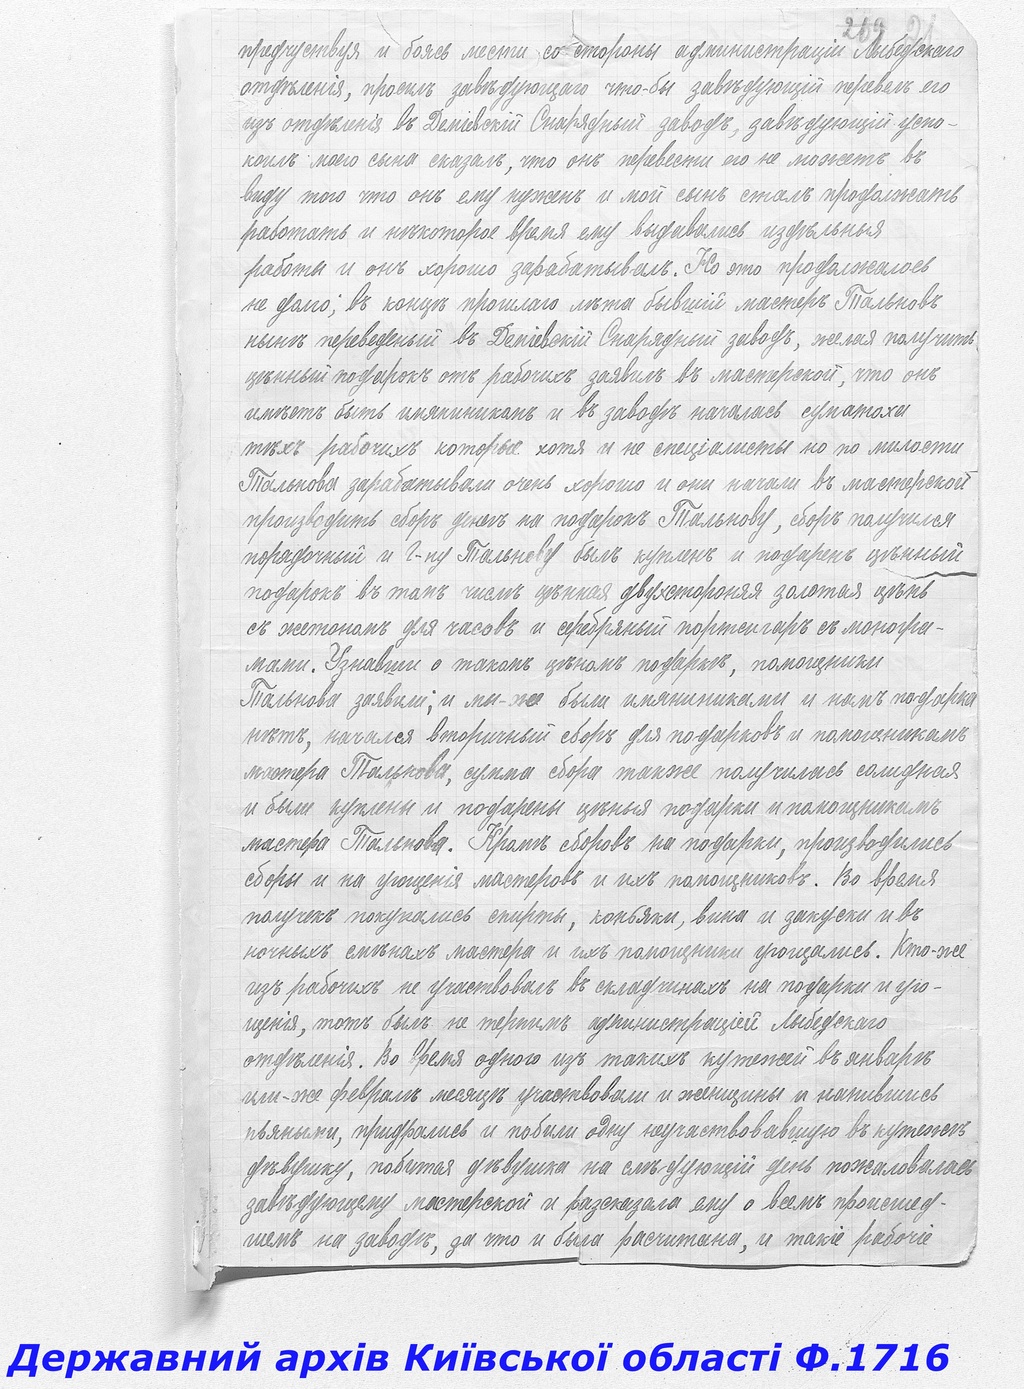 269 91
предчуствуя и боясь мести со стороны администраціи Лыбедскаго
отдѣленія, просилъ завѣдующаго что-бы завѣдующій перевелъ его
изъ отдѣленія въ Деміевскій Снарядный заводъ, завѣдующій успо-
коилъ моего сына сказалъ, что онъ перевести его не можетъ въ
виду того что онъ ему нуженъ и мой сынъ сталъ продолжать
работать и нѣкоторое время ему выдавались издѣльныя
работы и онъ хорошо зарабатывалъ. Но это продолжалось
не долго; въ концѣ прошлаго лѣта бывшій мастеръ Тальновъ
нынѣ переведеный въ Деміевскій Снарядный заводъ, желая получить
цѣнный подарокъ отъ рабочихъ заявилъ въ мастерской, что онъ
имѣетъ быть имяниникомъ и въ заводѣ началась суматоха
тѣхъ рабочихъ которые хотя и не спеціалисты но по милости
Тальнова зарабатывали очень хорошо и они начали въ мастерской
производить сборъ денегъ на подарокъ Тальнову, сборъ получился
порядочный и Г-ну Тальнову былъ купленъ и подаренъ цѣнный
подарокъ въ томъ числѣ цѣнная двухстороняя золотая цѣпь
съ жетономъ для часовъ и серебряный портсигаръ съ моногра-
мами. Узнавши о такомъ цѣномъ подаркѣ, помощники
Тальнова заявили; и мы-же были имяниниками и намъ подарка
нѣтъ, начался вторичный сборъ для подарковъ и помощникамъ
мастера Тальнова, сумма сбора также получилась солидная
и были куплены и подарены цѣныя подарки и помощникамъ
мастера Тальнова. Кромѣ сборовъ на подарки, производились
сборы и на угощенія мастеровъ и ихъ помощниковъ. Во время
получекъ покупались спирты, коньяки, вина и закуски и въ
ночныхъ смѣнахъ мастера и ихъ помощники угощались. Кто-же
изъ рабочихъ не участвовалъ въ складчинахъ на подарки и уго-
щенія, тотъ былъ не терпимъ администраціей Лыбедскаго
отдѣленія. Во время одного изъ такихъ кутежей въ январѣ
или-же февралѣ месяцѣ участвовали и женщины и напившись
пьяными, придрались и побили одну неучаствовавшую въ кутежѣ
дѣвушку, побитая дѣвушка на слѣдующій день пожаловалась
завѣдующему мастерской и разсказала ему о всемъ происшед-
шемъ на заводѣ, за что и была расчитана, и такіе рабочіе
Державний архів Київської області Ф.1716